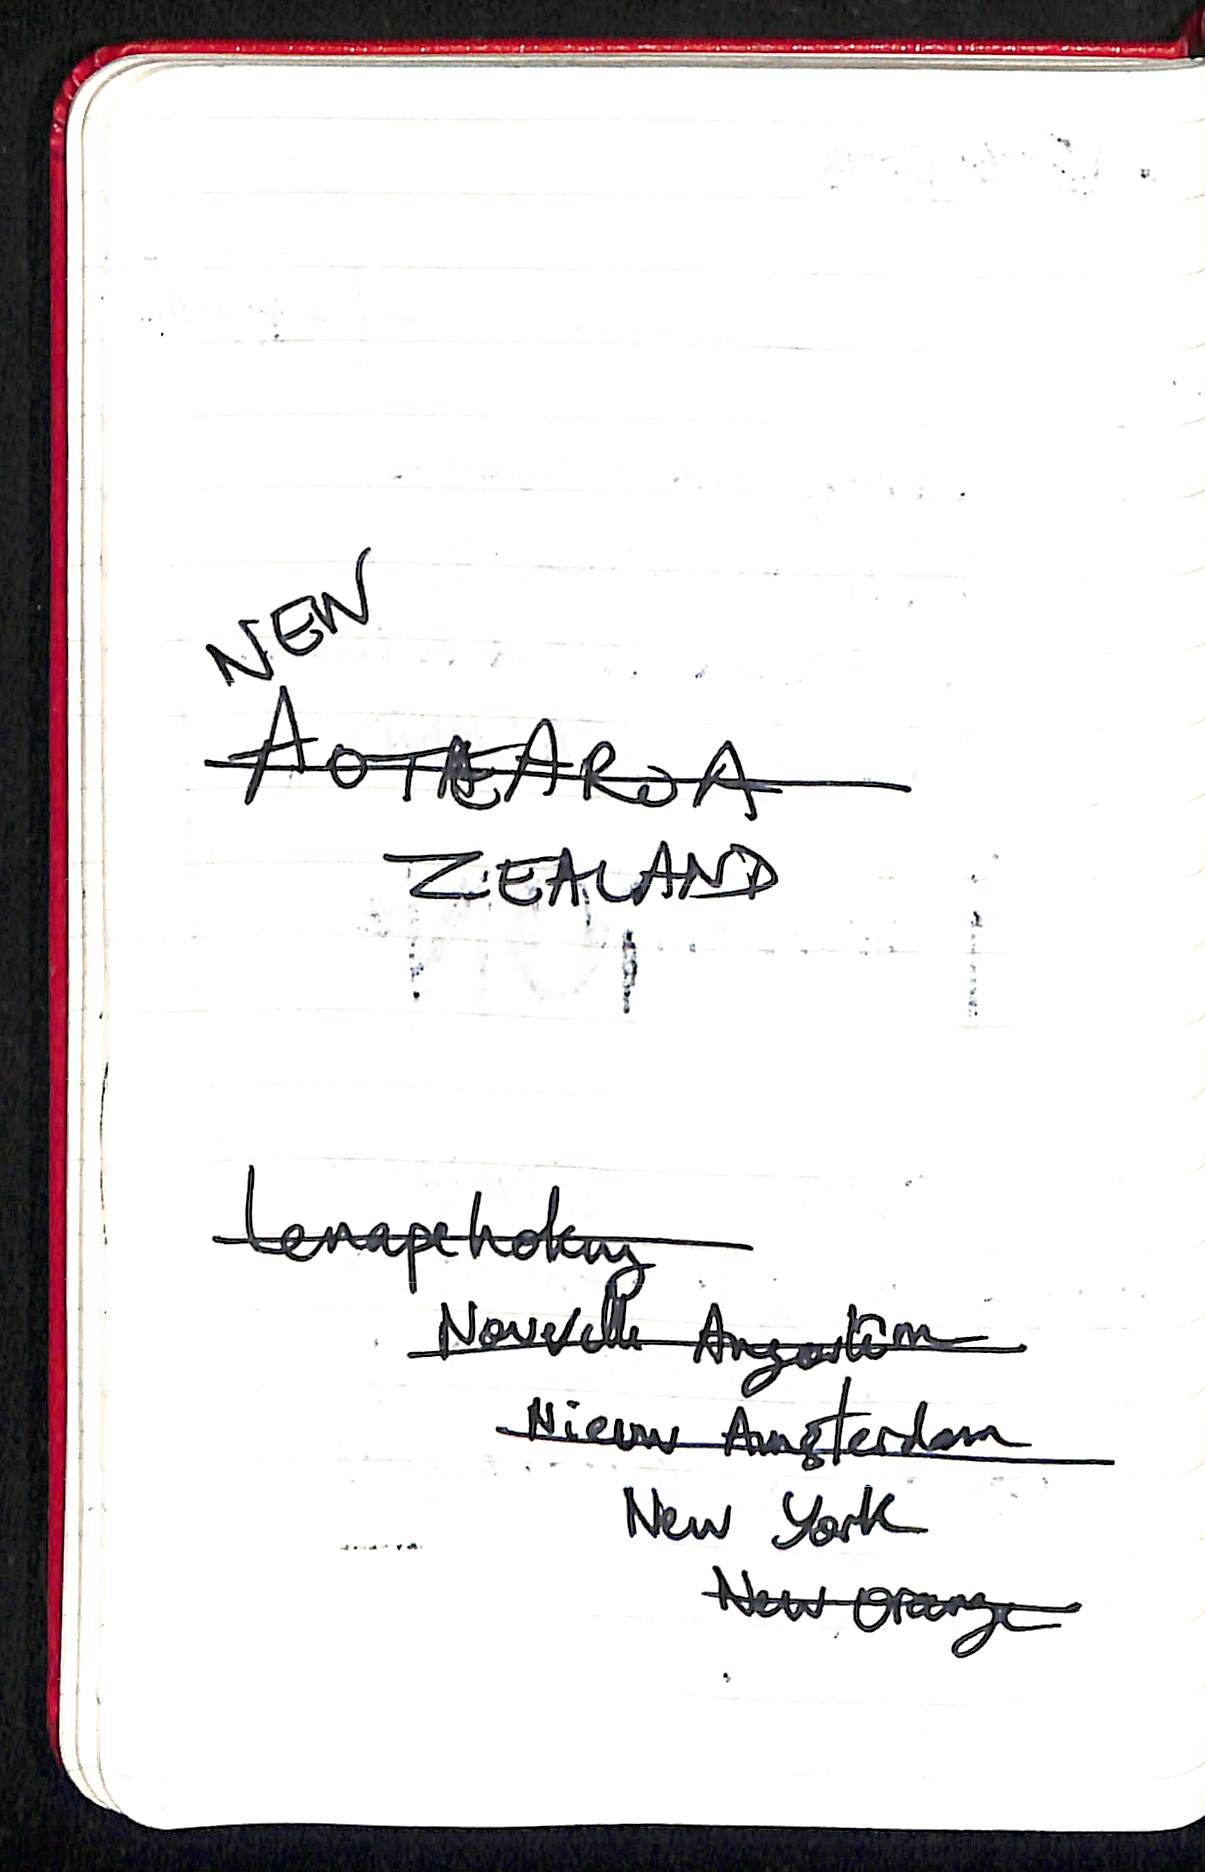 NEW
AOTEAROA
ZEALAND
Lenapehoking
Nouvelle Angoulême
Nieuw Amsterdam
New York
New Orange